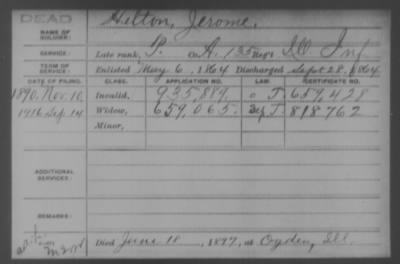 DEAD
NAME OF SOLDIER: Hilton, Jerome.
SERVICE: Late rank, P. Co. A, 135 Reg't Ill. Inf
TERM OF SERVICE: Enlisted May 6, 1864 Discharged Sept 28, 1864
DATE OF FILING. CLASS. APPLICATION NO. CERTIFICATE NO.
1890, Nov. 10, Invalid, 935,889. J 659,428
1916 Sep. 14 Widow, 659,065. J. 818762
Minor,
ADDITIONAL SERVICES:
REMARKS:
Died June 18, 1897, at Ogden, Ill.